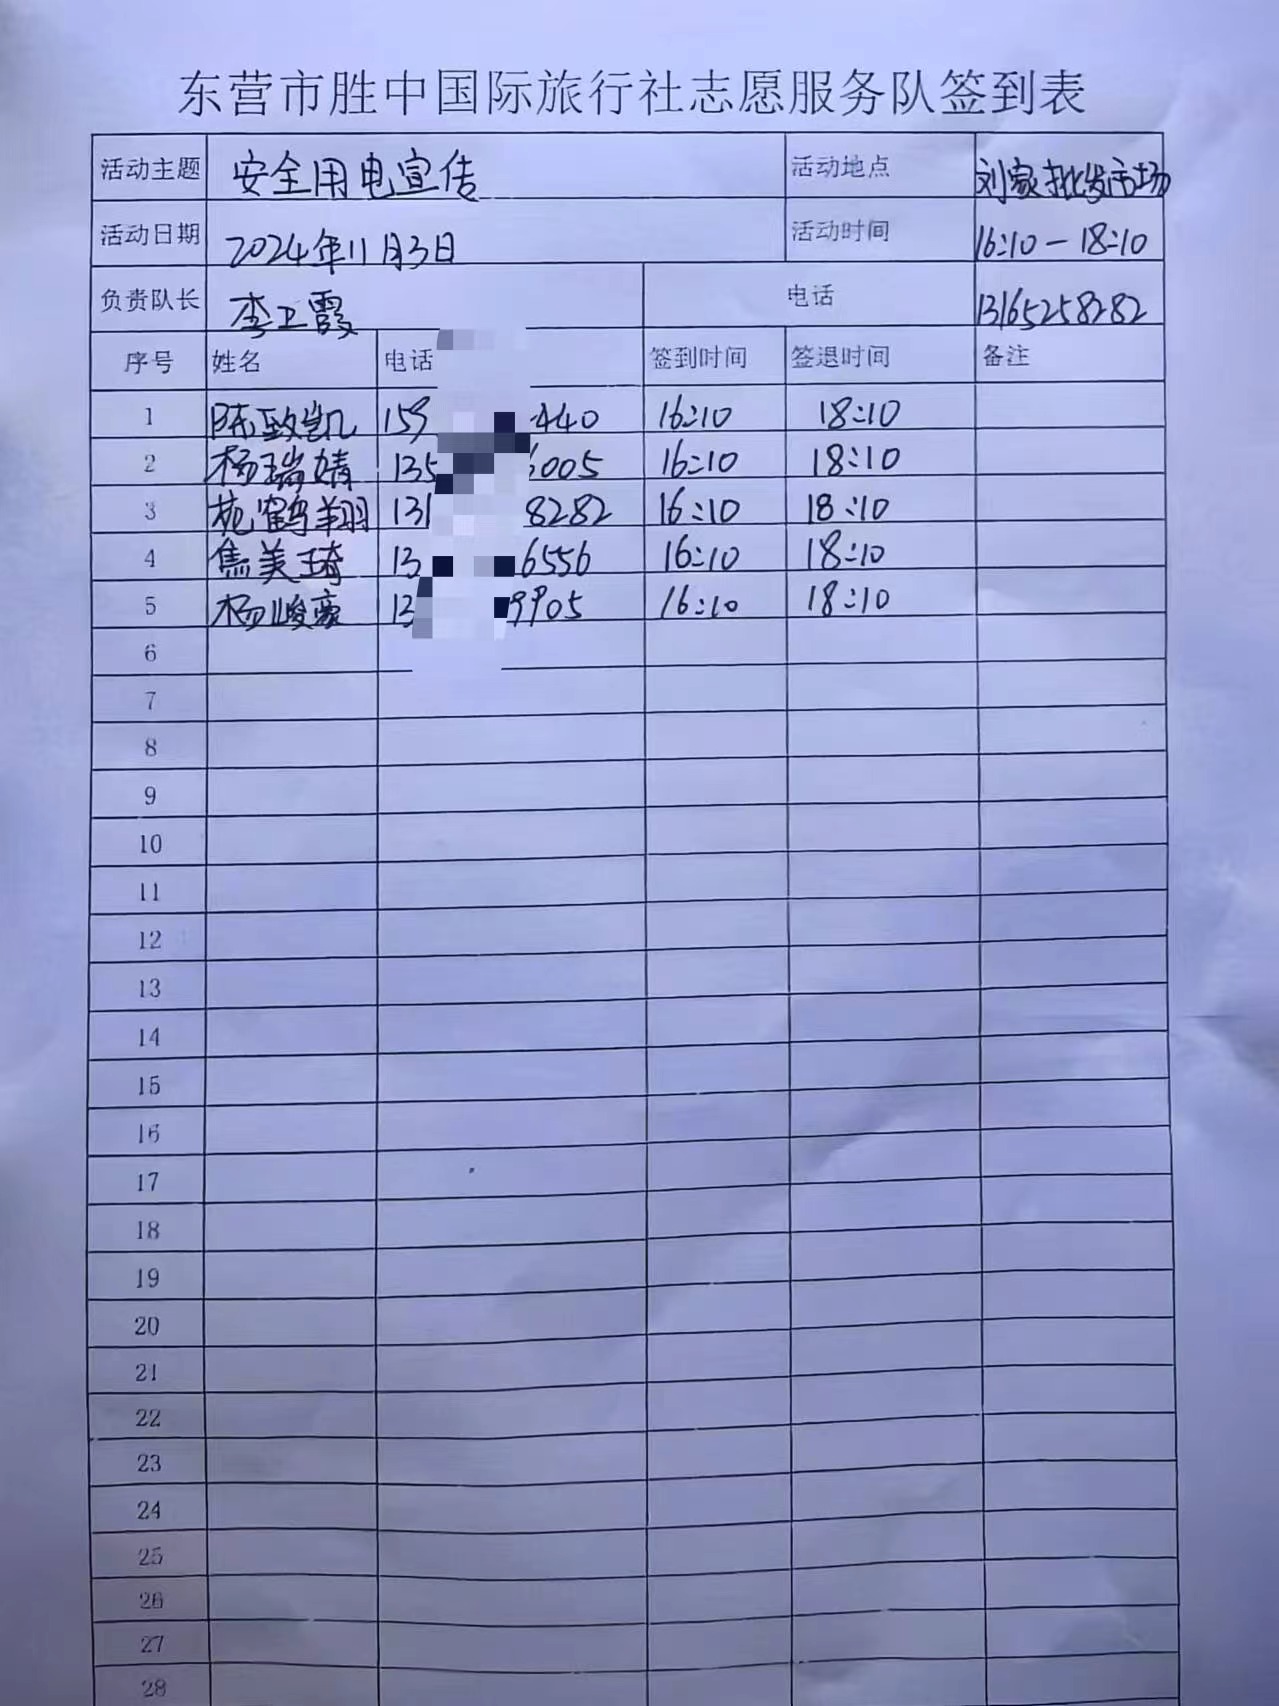 东营市胜中国际旅行社志愿服务队签到表
活动主题 安全用电宣传 活动地点 刘家批发市场
活动日期 2024年11月3日 活动时间 16:10-18:10
负责队长 李卫霞 电话 13165258282
序号 姓名 电话 签到时间 签退时间 备注
1 陈致凯 159 440 16:10 18:10
2 杨瑞婧 135 6005 16:10 18:10
3 苑鹤翔 131 8282 16:10 18:10
4 焦美琦 13 6556 16:10 18:10
5 杨峻豪 13 9905 16:10 18:10
6
7
8
9
10
11
12
13
14
15
16
17
18
19
20
21
22
23
24
25
26
27
28